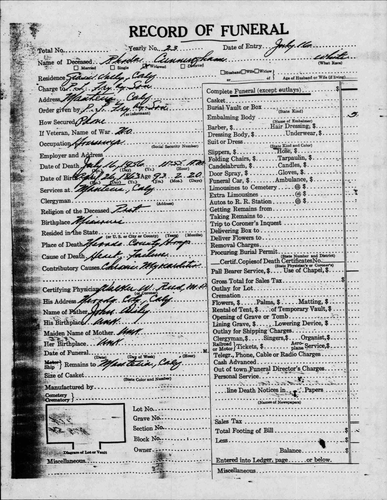 RECORD OF FUNERAL
Total No. Yearly No. 23 Date of Entry July 16
Name of Deceased Rhoda Cunningham White
Married Single Widowed Divorced (What Race)
Residence Calif Husband Wife Widow of Age of Husband or Wife (if living)
Charge to & Son
Address Manteca Calif
Order given by & Son
How Secured Phone
If Veteran, Name of War no
Occupation Housewife
(Social Security Number)
Employer and Address
Date of Death July 16
Date of Birth Age 93-2-20
Services at Manteca, Calif
Clergyman
(Address)
Religion of the Deceased Prot.
Birthplace Missouri
Resided in the State
(or U. S. City or County) (Years) (Months)
Place of Death Nevada County Hosp
Cause of Death Heart Failure
Contributory Causes Chronic Myocarditis
Certifying Physician Walter W. Reed, M.D.
His Address Nevada City, Calif
Name of Father John
His Birthplace unk.
Maiden Name of Mother unk.
Her Birthplace unk.
Date of Funeral M.
(Day of Week) (Date)
Remains to Manteca, Calif
Size of Casket
(State Color and Number)
Manufactured by
Cemetery
Crematory
Lot No.
Grave No.
Section No.
Block No.
Owner
Diagram of Lot or Vault
Miscellaneous
Complete Funeral (except outlays) $
Casket
Burial Vault or Box
(State Kind)
Embalming Body
Barber, $ Hair Dressing, $
Dressing Body, $ Underwear, $
Suit or Dress
(State Kind and Color)
Slippers, $ Hose, $
Folding Chairs, $ Tarpaulin, $
Candelabrum, $ Candles, $
Door Spray, $ Gloves, $
Funeral Car, $ Ambulance, $
Limousines to Cemetery @ $
Extra Limousines @ $
Autos to R. R. Station @ $
Getting Remains from
Taking Remains to
Trip to Coroner's Inquest
Delivering Box to
Deliver Flowers to
Removal Charges
Procuring Burial Permit
(State Number and District)
Certif. Copies of Death Certificate No.
Pall Bearer Service, $ Use of Chapel, $
Gross Total for Sales Tax $
Outlay for Lot
Cremation
Flowers, $ Palms, $ Matting, $
Rental of Tent, $ of Temporary Vault, $
Opening of Grave or Tomb
Lining Grave, $ Lowering Device, $
Outlay for Shipping Charges
Clergyman, $ Singers, $ Organist, $
Railroad or Motor Tickets, $ Aeroplane Service, $
Telegr., Phone, Cable or Radio Charges
Cash Advanced
Out of town Funeral Director's Charges
Personal Service
line Death Notices in Papers
(Names of Newspapers)
Sales Tax
Total Footing of Bill $
Less $
Balance $
Entered into Ledger, page or below.
Miscellaneous